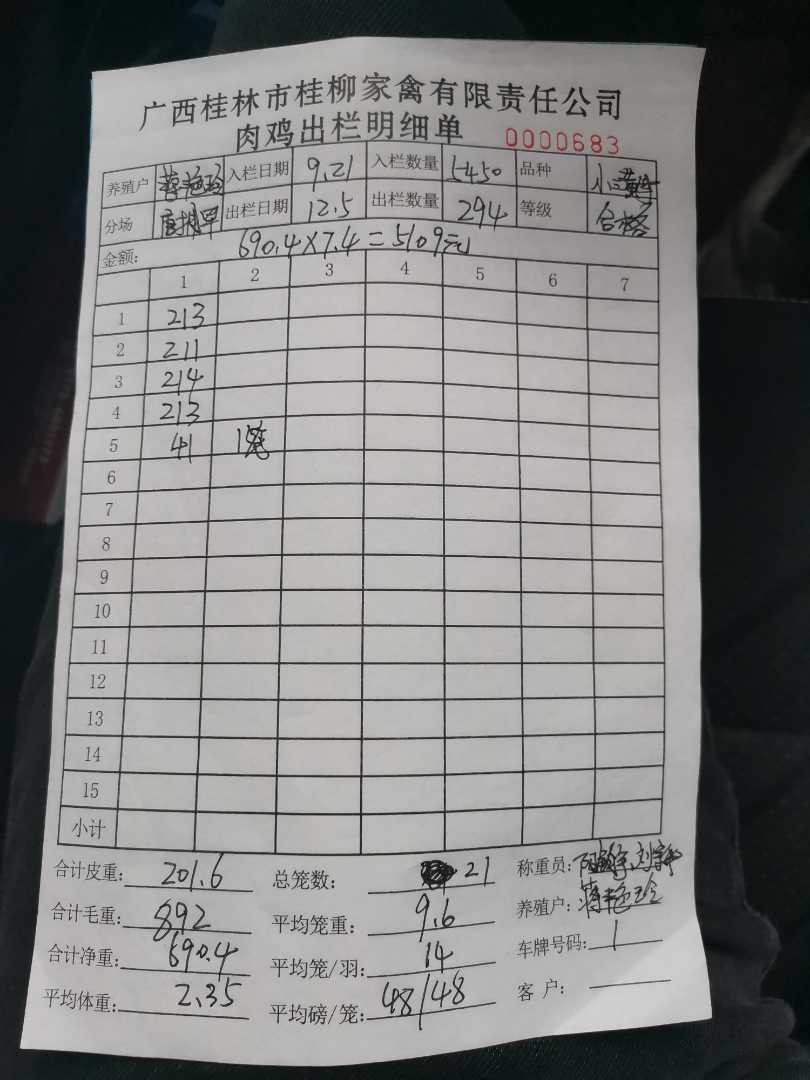 广西桂林市桂柳家禽有限责任公司
肉鸡出栏明细单 0000683
养殖户 蒋艳玲 入栏日期 9.21 入栏数量 5450 品种 小黄
分场 出栏日期 12.5 出栏数量 294 等级 合格
金额: 690.4×7.4=5109元
1 2 3 4 5 6 7
1 213
2 211
3 214
4 213
5 41 1笼
6
7
8
9
10
11
12
13
14
15
小计
合计皮重: 201.6 总笼数: 21 称重员:
合计毛重: 892 平均笼重: 9.6 养殖户: 蒋艳玲
合计净重: 690.4 平均笼/羽: 14 车牌号码: 1
平均体重: 2.35 平均磅/笼: 48/48 客户: